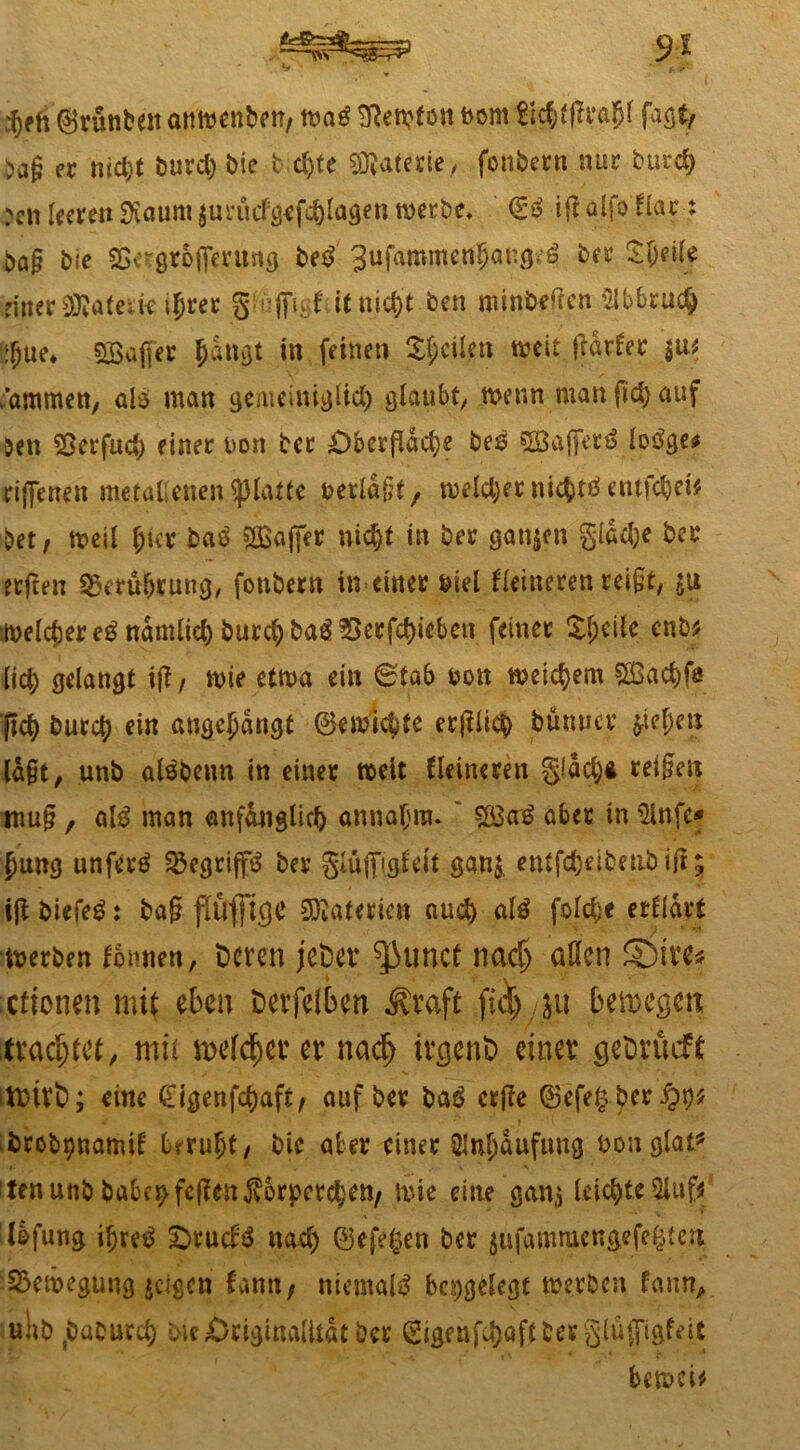 91
chen Gründen anwenden, was Newton vom Lichtstrahl sagt,
daß er nicht durch die dichte Materie, sondern nur durch
den leeren Raum zurückgeschlagen werde. Es ist also klar:
daß die Vergrößerung des Zusammenhanges der Theile
einer Materie ihrer Flüssigkeit nicht den mindesten Abbruch
thue. Wasser hängt in seinen Theilen weit stärker zu-
sammen, als man gemeiniglich glaubt, wenn man sich auf
den Versuch einer von der Oberfläche des Wassers losge-
rissenen metallenen Platte verläßt, welcher nichts entschei-
det, weil hier das Wasser nicht in der ganzen Fläche der
ersten Berührung, sondern in einer viel kleineren reißt, zu
welcher es nämlich durch das Verschieben seiner Theile end-
lich gelangt ist, wie etwa ein Stab von weichem Wachse
sich durch ein angehängt Gewichte erstlich dünner ziehen
läßt, und alsdenn in einer weit kleineren Fläche reißen
muß, als man anfänglich annahm. Was aber in Anse-
hung unsers Begriffs der Flüssigkeit ganz entscheidend ist;
ist dieses: daß flüssige Materien auch als solche erklärt
werden können, deren jeder Punct nach allen Dire-
ctionen mit eben derselben Kraft sich zu bewegen
trachtet, mit welcher er nach irgend einer gedrückt
wird; eine Eigenschaft, auf der das erste Gesetz der Hy-
drodynamik beruht, die aber einer Anhäufung von glat-
ten und dabey festen Körperchen, wie eine ganz leichte Auf-
lösung ihres Drucks nach Gesetzen der zusammengesetzten
Bewegung zeigen kann, niemals beygelegt werden kann,
und dadurch die Originalität der Eigenschaft der Flüssigkeit
bewei-